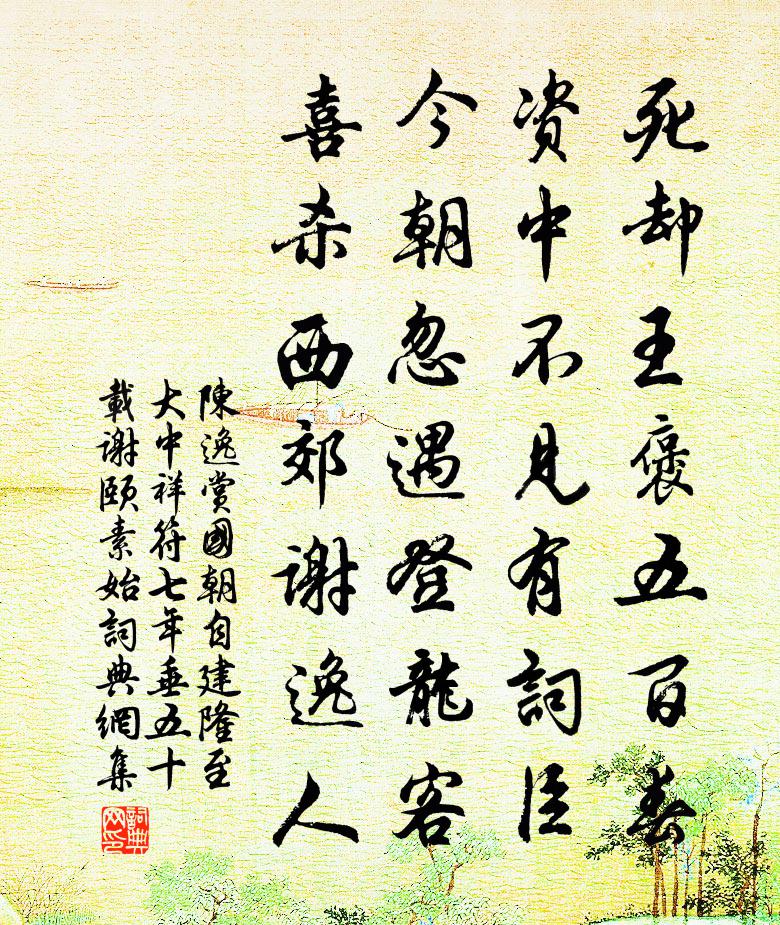 死却王褒五百春
资中不見有詞臣
今朝忽遇登龍客
喜杀西郊謝逸人
陳逸賞國朝自建隆至
大中祥符七年垂五十
載謝頤素始詞典網集
詞典网印